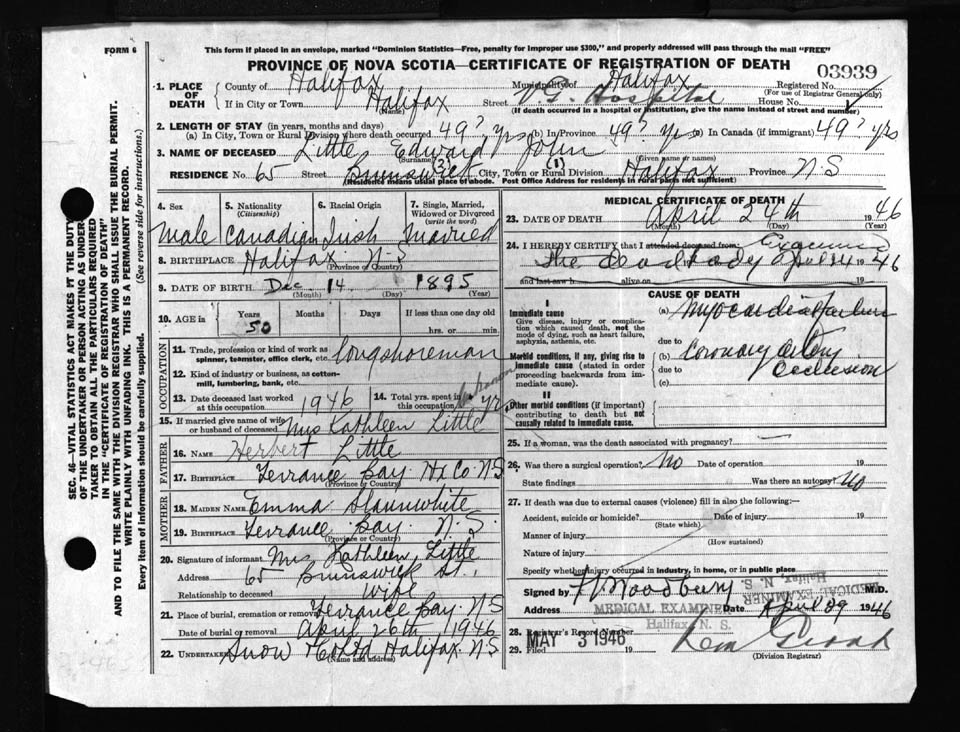 FORM 6
This form if placed in an envelope, marked "Dominion Statistics—Free, penalty for improper use $300," and properly addressed will pass through the mail "FREE"
PROVINCE OF NOVA SCOTIA—CERTIFICATE OF REGISTRATION OF DEATH
03939
1. PLACE OF DEATH
County of Halifax Municipality of Halifax Registered No.
(For use of Registrar General only)
If in City or Town Halifax Street V G Hospital House No.
(Name) (If death occurred in a hospital or institution, give the name instead of street and number)
2. LENGTH OF STAY (in years, months and days)
(a) In City, Town or Rural Division where death occurred 49? yrs (b) In Province 49? yrs (c) In Canada (if immigrant) 49? yrs
3. NAME OF DECEASED Little Edward John
(Surname) (2) (1) (Given name or names)
RESIDENCE No. 65 Street Brunswick City, Town or Rural Division Halifax Province N.S
(Residence means usual place of abode. Post Office Address for residents in rural parts not sufficient)
4. Sex Male
5. Nationality (Citizenship) Canadian
6. Racial Origin Irish
7. Single, Married, Widowed or Divorced (write the word) Married
8. BIRTHPLACE Halifax N.S
(Province or Country)
9. DATE OF BIRTH Dec. 14 1895
(Month) (Day) (Year)
10. AGE Years 50 Months Days If less than one day old hrs. or min.
OCCUPATION
11. Trade, profession or kind of work as spinner, teamster, office clerk, etc. Longshoreman
12. Kind of industry or business, as cotton-mill, lumbering, bank, etc.
13. Date deceased last worked at this occupation 1946
14. Total yrs. spent in this occupation yrs
15. If married give name of wife or husband of deceased Mrs Kathleen Little
FATHER
16. NAME Herbert Little
17. BIRTHPLACE Terrance Bay Hx Co N S
(Province or Country)
MOTHER
18. MAIDEN NAME Emma Slaunwhite
19. BIRTHPLACE Terrance Bay. N.S.
(Province or Country)
20. Signature of informant Mrs Kathleen Little
Address 65 Brunswick St.,
Relationship to deceased wife
21. Place of burial, cremation or removal Terrance Bay N S
Date of burial or removal April 26th 1946
22. UNDERTAKER Snow & Co Ltd Halifax N S
(Name and address)
MEDICAL CERTIFICATE OF DEATH
23. DATE OF DEATH April 24th 1946
(Month) (Day) (Year)
24. I HEREBY CERTIFY that I attended deceased from: Examined
the dead body April 24 1946
and last saw h alive on 19
CAUSE OF DEATH
I
Immediate cause
Give disease, injury or complication which caused death, not the mode of dying, such as heart failure, asphyxia, asthenia, etc.
(a) Myocardial failure
due to
Morbid conditions, if any, giving rise to immediate cause (stated in order proceeding backwards from immediate cause).
(b) Coronary Artery Occlusion
due to
(c)
II
Other morbid conditions (if important) contributing to death but not causally related to immediate cause.
25. If a woman, was the death associated with pregnancy? —
26. Was there a surgical operation? No Date of operation 19
State findings Was there an autopsy? No
27. If death was due to external causes (violence) fill in also the following:—
Accident, suicide or homicide? Date of injury 19
(State which)
Manner of injury
(How sustained)
Nature of injury
Specify whether injury occurred in industry, in home, or in public place
Signed by Woodbury M.D.
MEDICAL EXAMINER
Halifax, N. S.
Address MEDICAL EXAMINER Date April 29 1946
Halifax, N. S.
28. Registrar's Record Number
MAY 3 1946
29. Filed 19
(Division Registrar)
SEC. 46—VITAL STATISTICS ACT MAKES IT THE DUTY
OF THE UNDERTAKER OR PERSON ACTING AS UNDERTAKER TO OBTAIN ALL THE PARTICULARS REQUIRED
IN THE "CERTIFICATE OF REGISTRATION OF DEATH"
AND TO FILE THE SAME WITH THE DIVISION REGISTRAR WHO SHALL ISSUE THE BURIAL PERMIT.
WRITE PLAINLY WITH UNFADING INK. THIS IS A PERMANENT RECORD.
Every item of information should be carefully supplied. (See reverse side for instructions.)